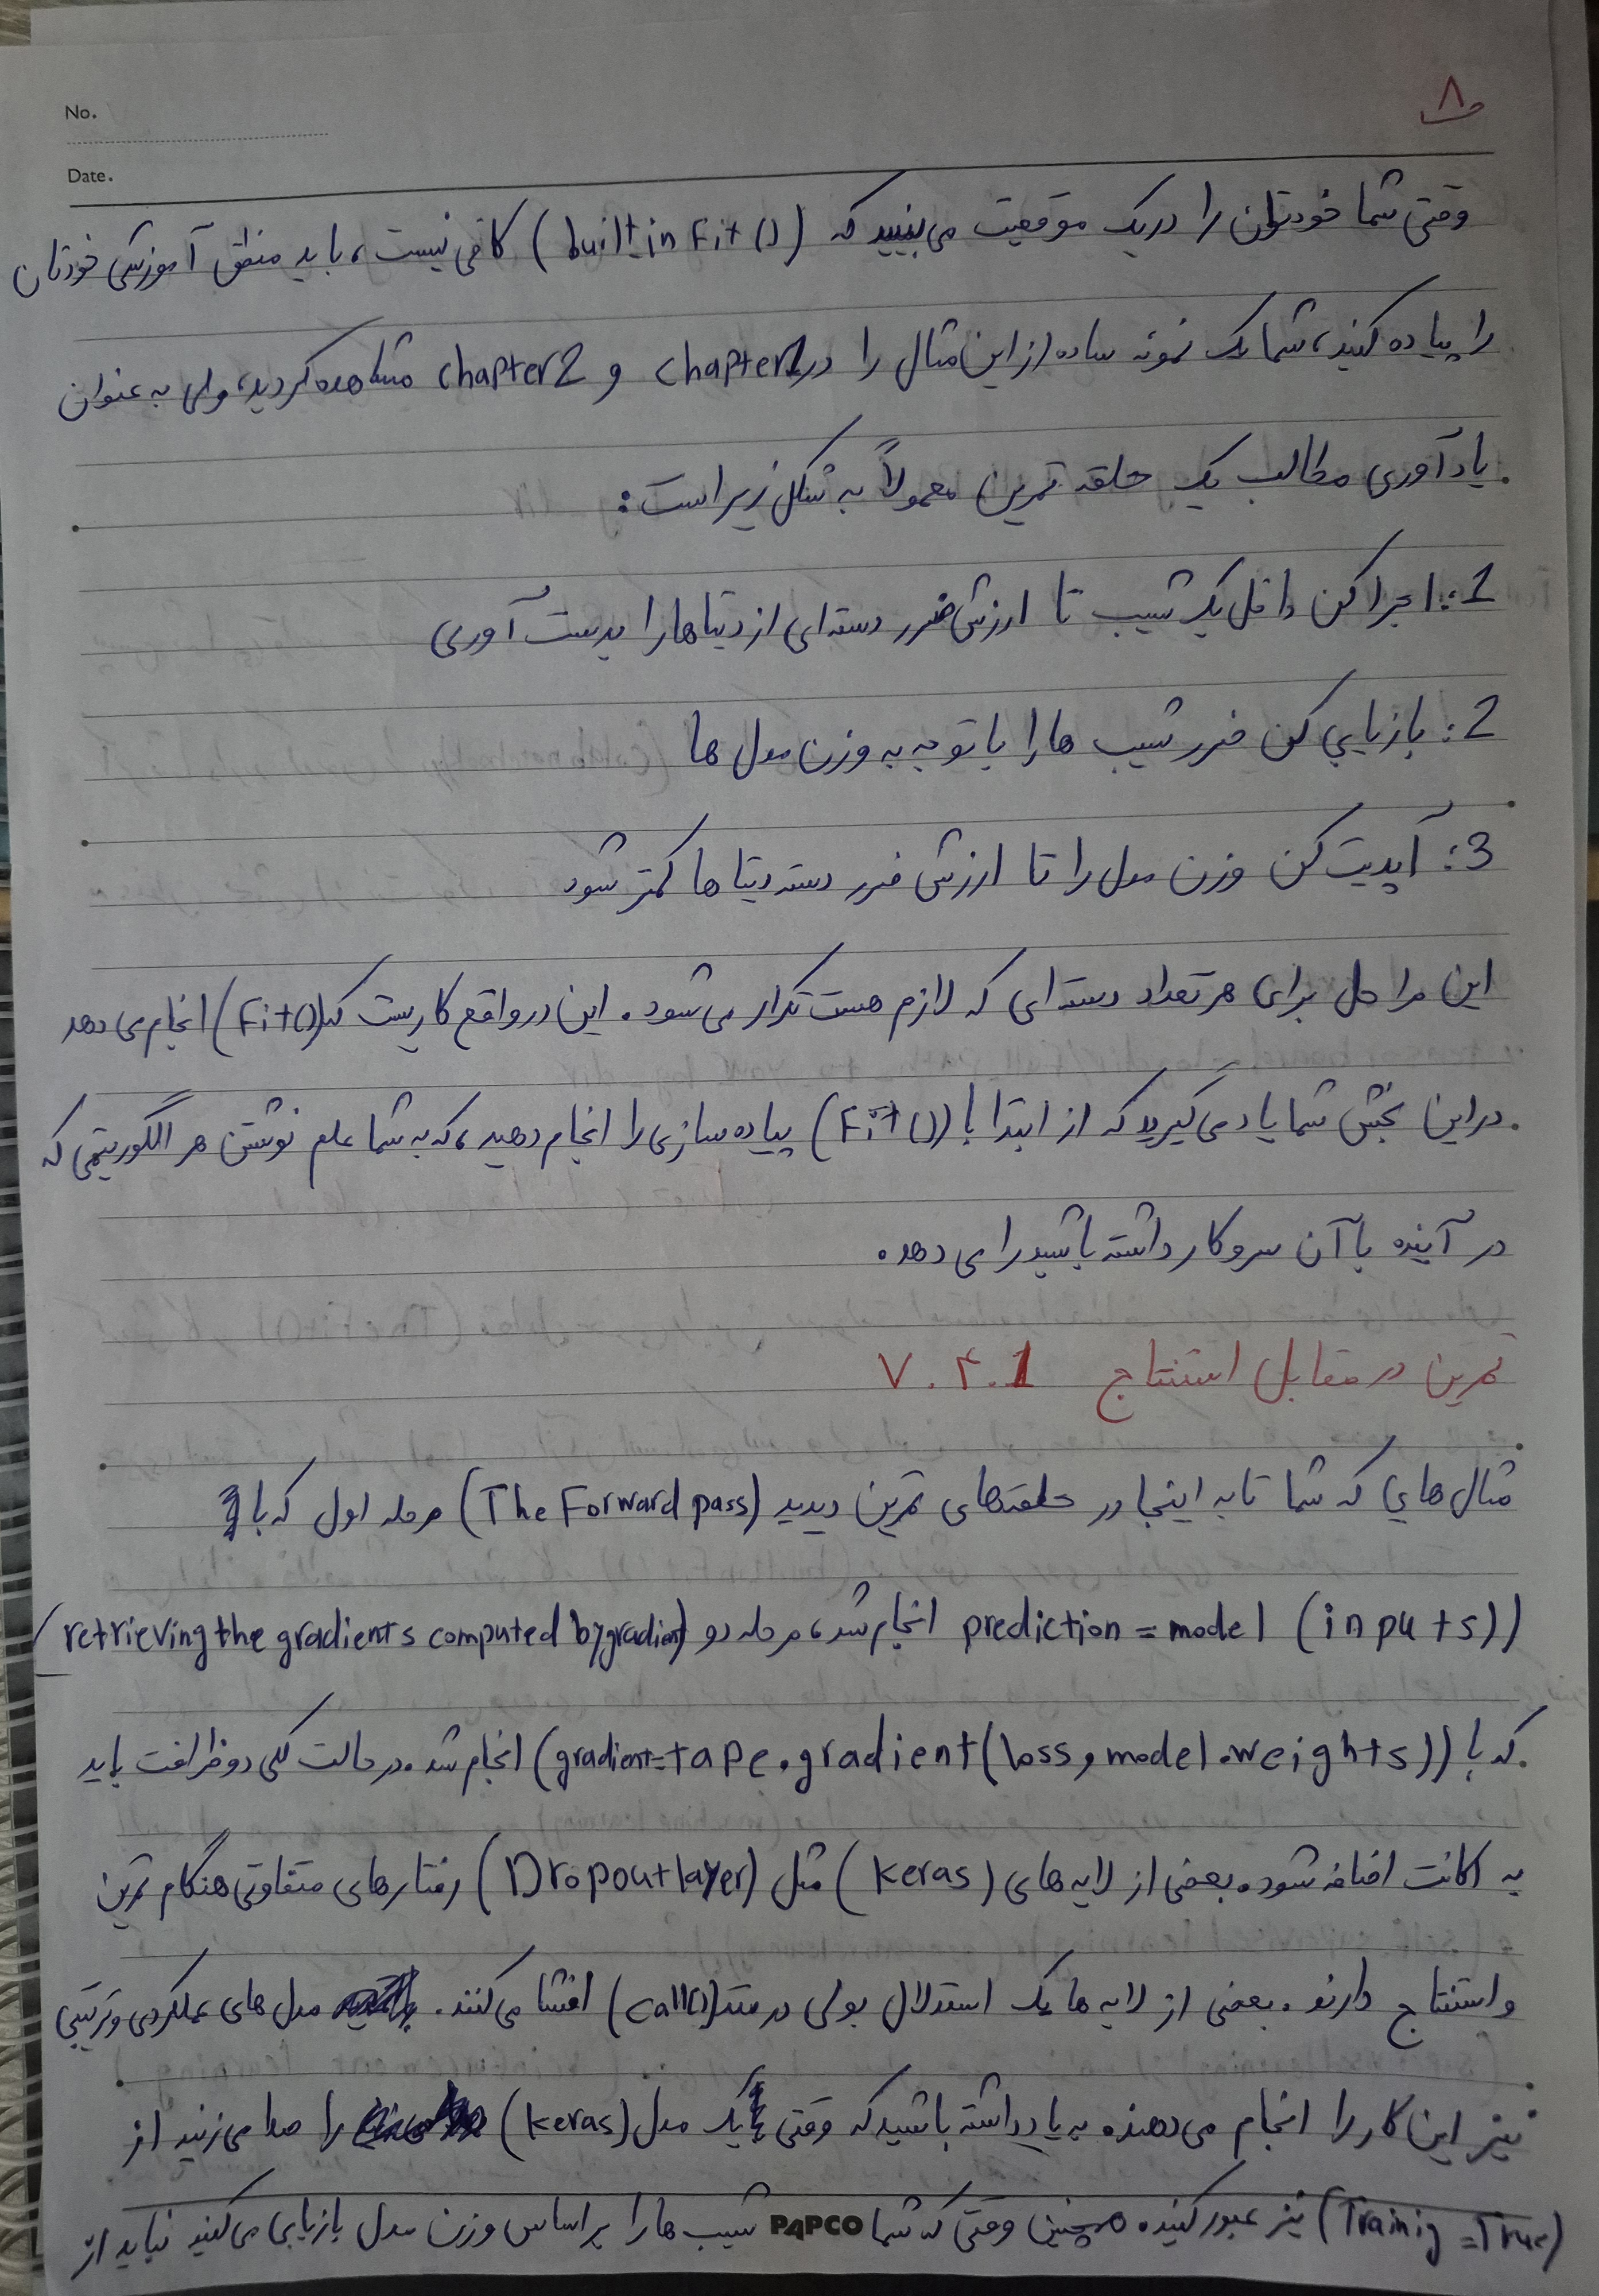 No.
Date.
ص ۸
وقتی شما خودتان را در یک موقعیت می‌بینید که (built in Fit ()) کافی نیست، باید منطق آموزشی خودتان
را پیاده کنید، شما یک نمونه ساده از این مثال را در chapter1 و chapter2 مشاهده کردید، ولی به عنوان
یادآوری مطالب یک حلقه تمرین معمولاً به شکل زیر است:
1: اجرا کن داخل یک شیب تا ارزش ضرر دسته‌ای از دیتاها را بدست آوری
2: بازیابی کن ضرر شیب ها را با توجه به وزن مدل ها
3: آپدیت کن وزن مدل را تا ارزش ضرر دسته دیتا ها کمتر شود
این مراحل برای هر تعداد دسته‌ای که لازم هست تکرار می‌شود. این در واقع کاریست که (Fit()) انجام می‌دهد
در این بخش شما یاد می‌گیرید که از ابتدا با (Fit ()) پیاده سازی را انجام دهید، که به شما علم نوشتن هر الگوریتمی که
در آینده با آن سروکار داشته باشید را می دهد.
تمرین در مقابل استنتاج ۷.۴.1
مثال هایی که شما تا به اینجا در حلقه‌های تمرین دیدید (The Forward pass) مرحله اول که با
prediction = model (inputs)) انجام شد، مرحله دو (retrieving the gradients computed by gradient
که با (gradient=tape.gradient(loss, model.weights)) انجام شد. در حالت کلی دو ظرافت باید
به اکانت اضافه شود. بعضی از لایه های (keras) مثل (Dropout layer) رفتارهای متفاوتی هنگام تمرین
و استنتاج دارند. بعضی از لایه ها یک استدلال بولی در متد (call()) افشا می‌کنند. مدل های عملکردی و ترتیبی
نیز این کار را انجام می‌دهند. به یاد داشته باشید که وقتی یک مدل (keras) را صدا می‌زنید از
(Trainig =True) نیز عبور کنید. همچنین وقتی که شما شیب ها را بر اساس وزن مدل بازیابی می‌کنید نباید از
PAPCO